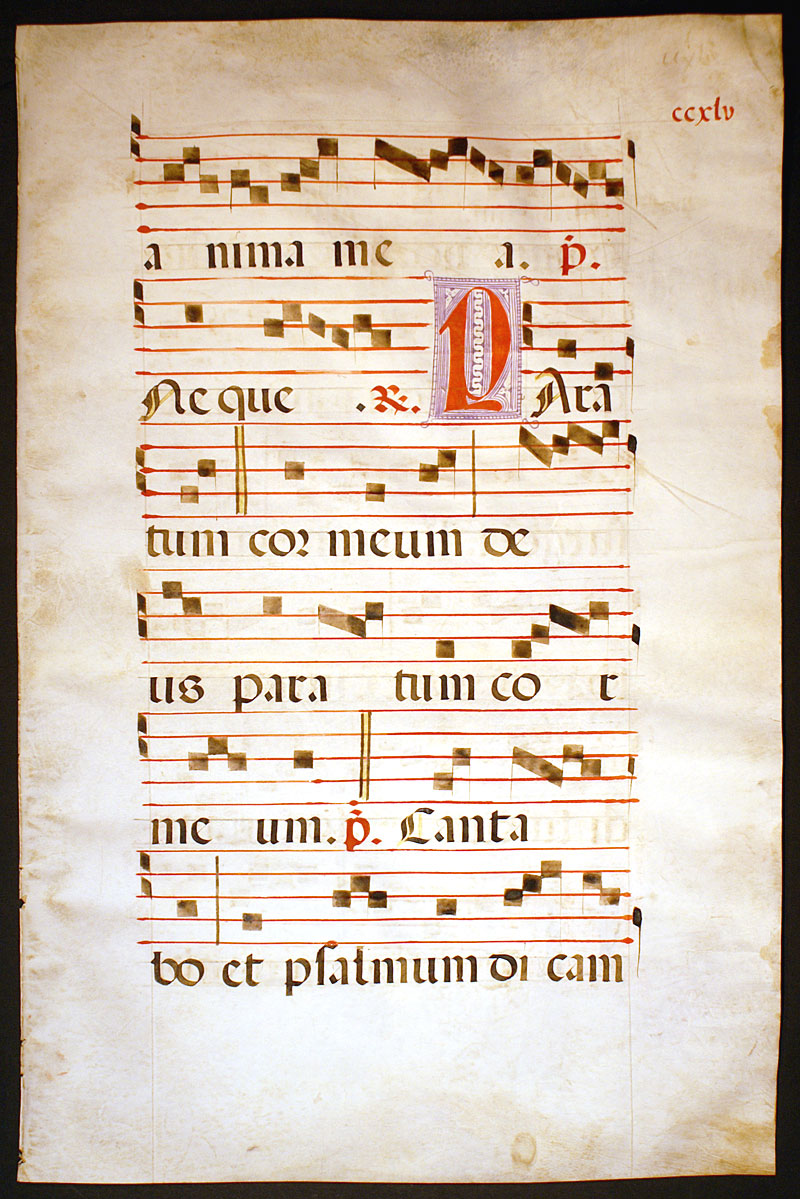 ccxlv
a nima me a. p̄.
Neque .℟. PAra
tum cor meum de
us para tum co r
me um. p̄. Canta
bo et psalmum di cam